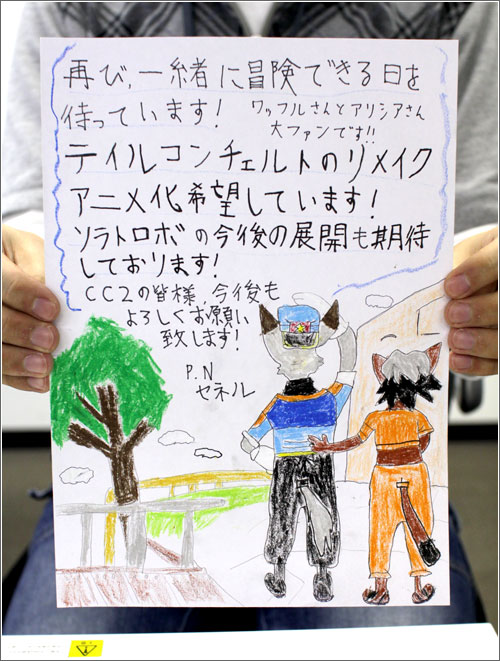 再び、一緒に冒険できる日を
待っています!
ワッフルさんとアリシアさん
大ファンです!!
テイルコンチェルトのリメイク
アニメ化希望しています!
ソラトロボの今後の展開も期待
しております!
CC2の皆様、今後も
よろしくお願い
致します!
P.N
セネル